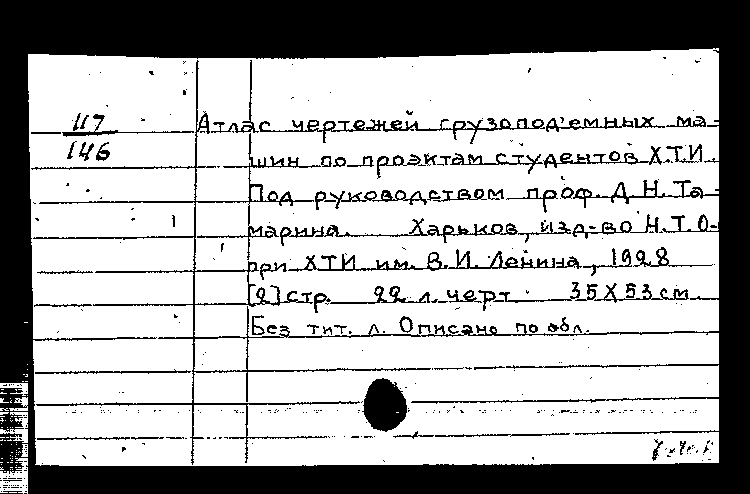 117
146
Атлас чертежей грузопод'емных ма-
шин по проэктам студентов Х.Т.И.
Под руководством проф. Д.Н. Та-
марина. Харьков, изд-во Н.Т.О-
при ХТИ им. В.И. Ленина, 1928
[2] стр. 22 л. черт. 35X53 см.
Без тит. л. Описано по обл.